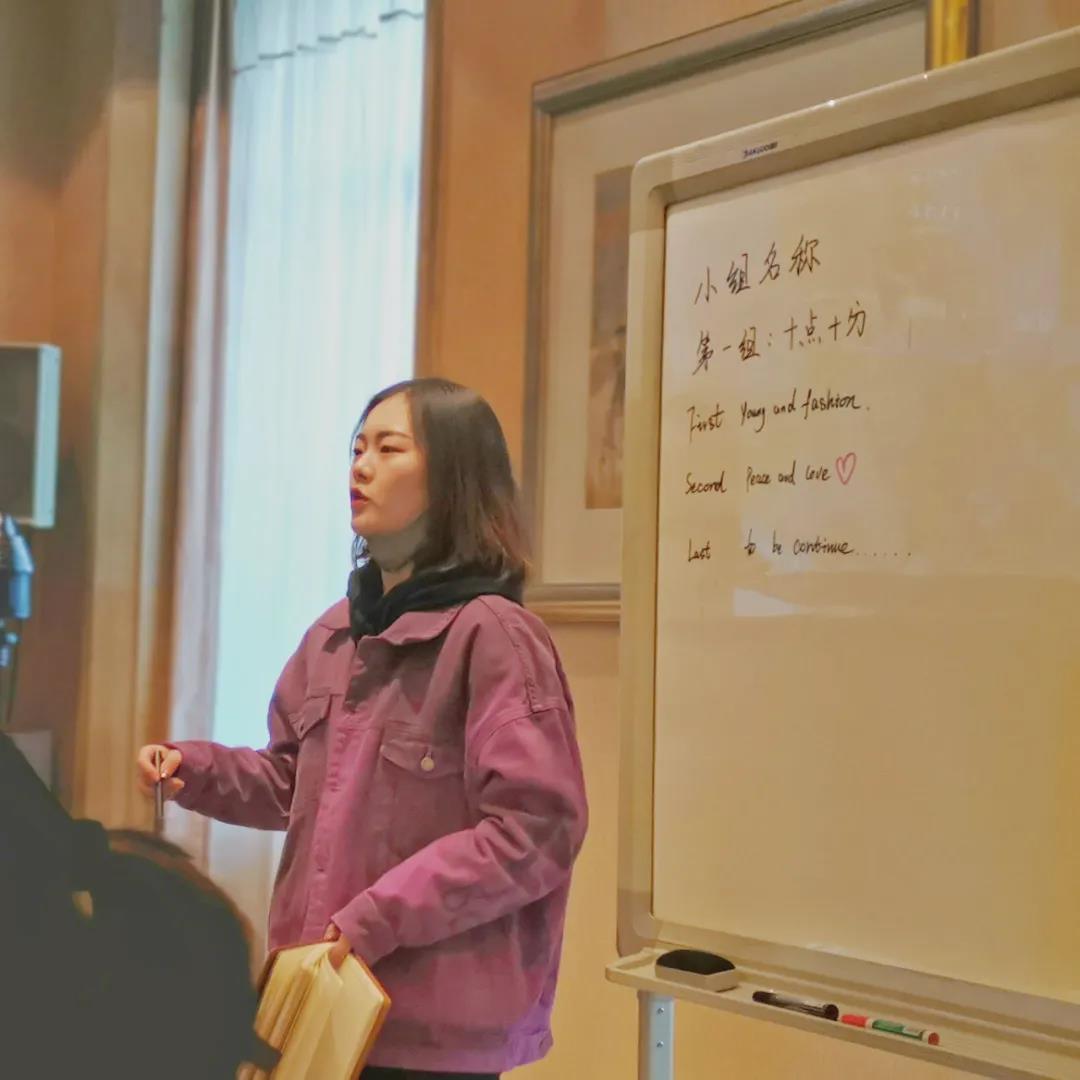 小组名称
第一组：十点十分
First Young and fashion.
Second Peace and love
Last to be continue......